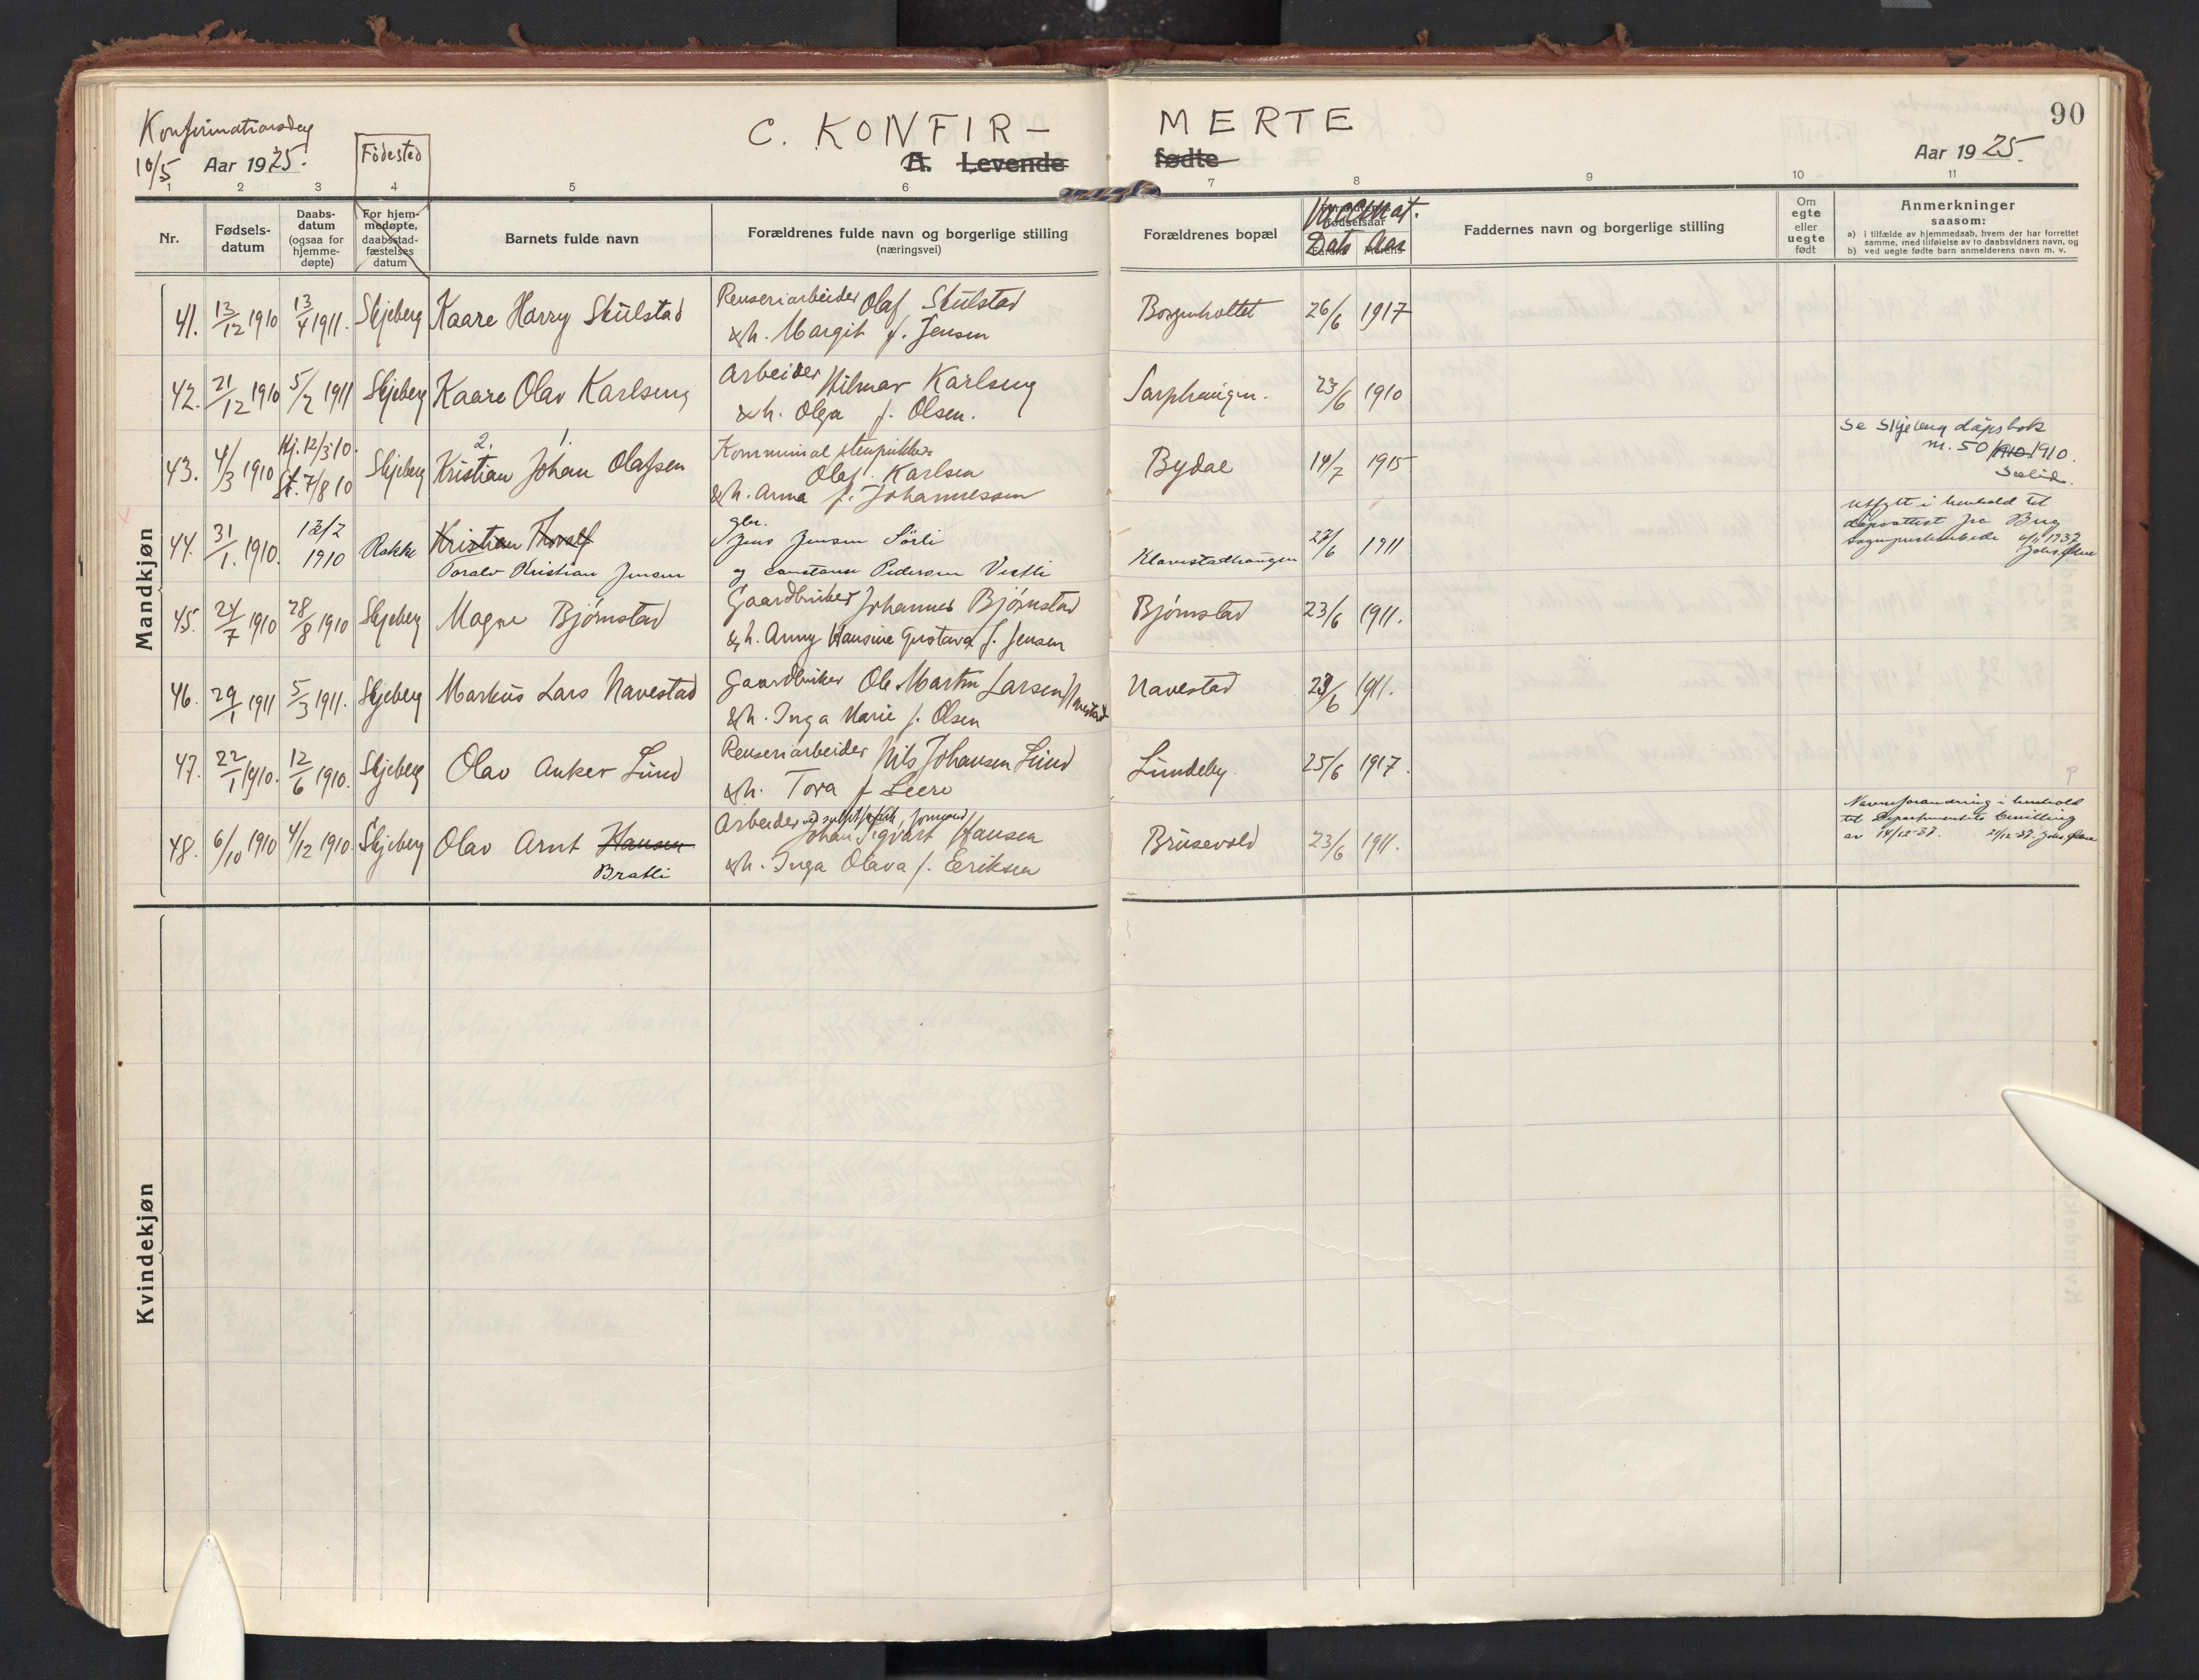 Konfirmationsdag
10/5 Aar 1925.
Fødested
C. KONFIR- MERTE
A. Levende fødte
90
Aar 1925.
1 2 3 4 5 6 7 8 9 10 11
Nr.
Fødsels-
datum
Daabs-
datum
(ogsaa for
hjemme-
døpte)
For hjem-
medøpte,
daabsstad-
fæstelses
datum
Barnets fulde navn
Forældrenes fulde navn og borgerlige stilling
(næringsvei)
Forældrenes bopæl
Vaccinat.
Dato Aar
Faddernes navn og borgerlige stilling
Om
egte
eller
uegte
født
Anmerkninger
saasom:
a) i tilfælde av hjemmedaab, hvem der har forrettet
samme, med tilføielse av to daabsvidners navn, og
b) ved uegte fødte barn anmelderens navn m. v.
Mandkjøn
41. 13/12 1910 13/4 1911. Skjeberg Kaare Harry Skulstad Renseriarbeider Olaf Skulstad Borgenholtet 26/6 1917
& h. Margit f. Jensen
42. 21/12 1910 5/2 1911 Skjeberg Kaare Olav Karlseng Arbeider Hilmar Karlseng Sarphaugen. 23/6 1910
& h. Olga f. Olsen.
43. 4/3 1910 Hj. 12/3 10. St. 7/8 10 Skjeberg 2. 1. Kristian Johan Olafsen Kommunal stenpukker Bydal 14/7 1915 Se Skjeberg dåpsbok
Olaf Karlsen nr. 50/1910 1910.
& h. Anna f. Johannessen
44. 31/1. 1910. 13/2 1910 Rakke Kristian Thoralf gbr. Jens Jensen Sørli Klavestadhaugen 27/6 1911 Utfylt i henhold til
Toralv Kristian Jensen og Constanse Pedersen Vestli dåpsattest fra Berg
45. 24/7 1910 28/8 1910 Skjeberg Magne Bjørnstad Gaardbruker Johannes Bjørnstad Bjørnstad 23/6 1911.
& h. Anny Hansine Gustava f. Jensen
46. 29/1 1911 5/3 1911. Skjeberg Markus Lars Navestad Gaardbruker Ole Martin Larsen Navestad Navestad 23/6 1911.
& h. Inga Marie f. Olsen
47. 22/1 1910. 12/6 1910. Skjeberg Olav Anker Lund Renseriarbeider Nils Johansen Lund Lundeby. 25/6 1917.
& h. Tora f. Leere
48. 6/10 1910 4/12 1910 Skjeberg Olav Arnt Hansen Arbeider Johan Sigvart Hansen Brusevold 23/6 1911. Navneforandring i henhold
Bratli & h. Inga Olava f. Eriksen til Departementets bevilling
av 14/12-37.
Kvindekjøn